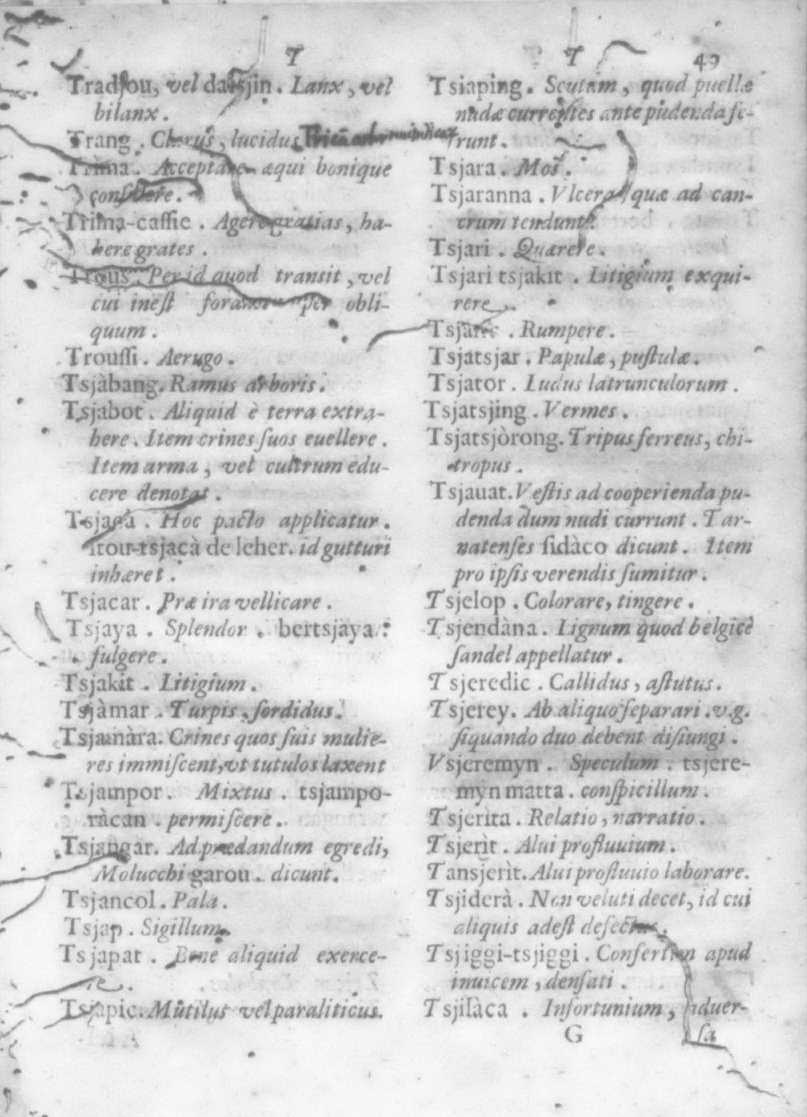 T
Tradſou, vel datsjin. Lanx, vel
bilanx.
Trang. Charus, lucidus
Trima. Acceptare æqui bonique
conſulere.
Trima-caſſie. Agere gratias, ha-
bere grates.
Trous. Per id quod transit, vel
cui ineſt foramen per obli-
quum.
Trouſſi. Aerugo.
Tsjàbang. Ramus arboris.
Tsjabot. Aliquid è terra extra-
here. Item crines ſuos euellere.
Item arma, vel cultrum edu-
cere denotat.
Tsjaga. Hoc pacto applicatur.
itou-tsjacà de leher. id gutturi
inhæret.
Tsjacar. Præ ira vellicare.
Tsjaya. Splendor. bertsjaya:
fulgere.
Tsjakit. Litigium.
Tsjàmar. Turpis, ſordidus.
Tsjamàra. Crines quos ſuis mulie-
res immiſcent, vt tutulos laxent
Tsjampor. Mixtus. tsjampo-
ràcan. permiſcere.
Tsjangar. Ad prædandum egredi,
Molucchi garou. dicunt.
Tsjancol. Pala.
Tsjap. Sigillum.
Tsjapat. Bene aliquid exerce-
re.
Tsjapic. Mutilus vel paraliticus.
T 49
Tsiaping. Scutum, quod puellæ
nudæ currentes ante pudenda fe-
runt.
Tsjara. Mos.
Tsjaranna. Vlcera, quæ ad can-
crum tendunt.
Tsjari. Quærere.
Tsjari tsjakit. Litigium exqui-
rere.
Tsjaric. Rumpere.
Tsjatsjar. Papulæ, puſtulæ.
Tsjator. Ludus latrunculorum.
Tsjatsjing. Vermes.
Tsjatsjòrong. Tripus ferreus, chi-
tropus.
Tsjauat. Veſtis ad cooperienda pu-
denda dum nudi currunt. Tar-
natenſes ſidàco dicunt. Item
pro ipſis verendis ſumitur.
Tsjelop. Colorare, tingere.
Tsjendàna. Lignum quod belgicè
ſandel appellatur.
Tsjeredic. Callidus, aſtutus.
Tsjerey. Ab aliquo ſeparari. v.g.
ſiquando duo debent diſiungi.
Vsjeremyn. Speculum. tsjere-
myn matta. conſpicillum.
Tsjerita. Relatio, narratio.
Tsjerìt. Alui profluuium.
Tansjerìt. Alui profluuio laborare.
Tsjiderà. Non veluti decet, id cui
aliquis adeſt defectus.
Tsjiggi-tsjiggi. Confertim apud
inuicem, denſati.
Tsjilàca. Infortunium, aduer-
G ſa